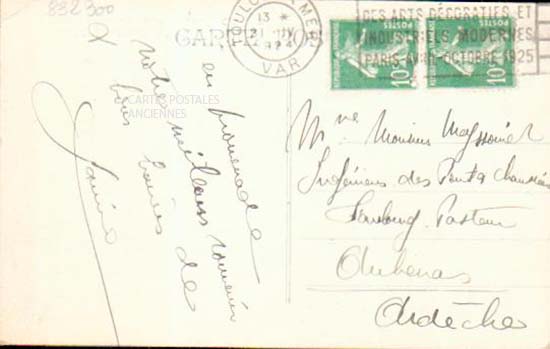 832300
CARTE POS
TOULON
13 *
21 IV
VAR
DES ARTS DÉCORATIFS ET
INDUSTRIELS MODERNES
PARIS AVRIL-OCTOBRE 1925
POSTES
10c
POSTES
10c
CARTES POSTALES
ANCIENNES
en promenade
notre meilleur souvenir
bons baisers de
Mme Monsieur
Ingénieur des Ponts Chaussées
Faubourg Pasteur
Aubenas
Ardèche